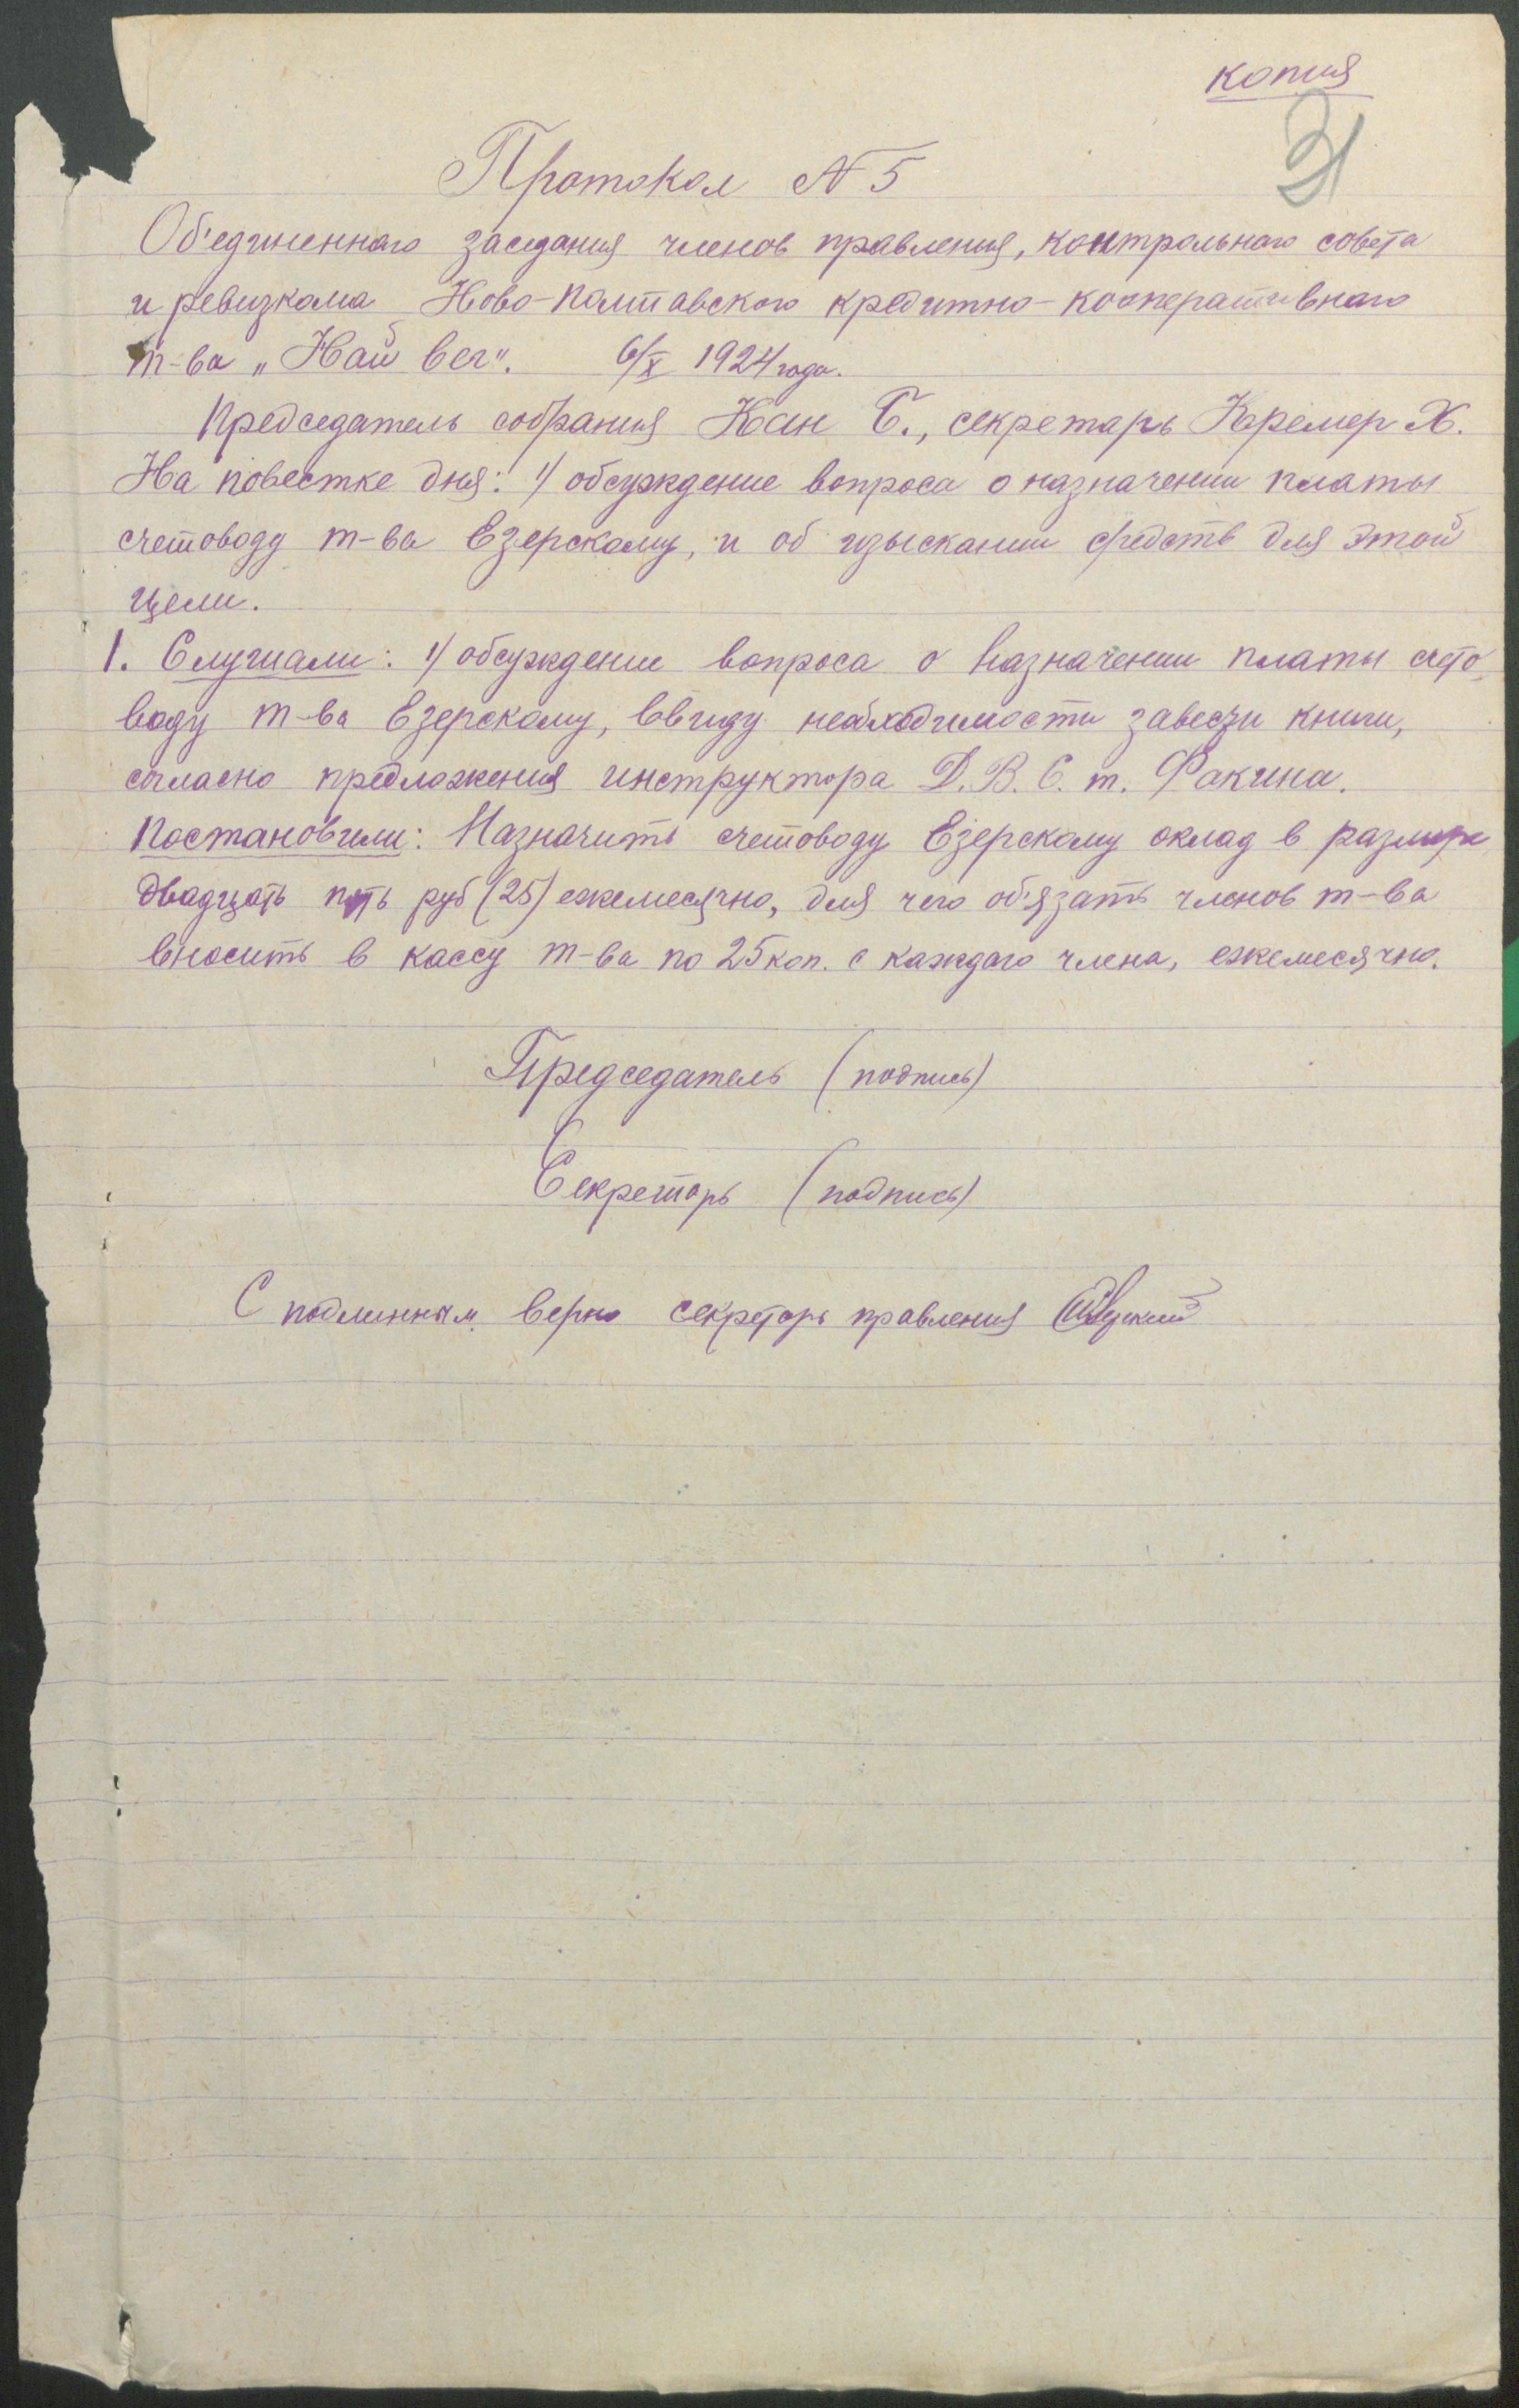 копия
31
Протокол N 5
Об'единеннаго заседания членов правления, контрольнаго совета
и ревизкома Ново-Полтавского кредитно-кооперативнаго
т-ва „Най вег". 6/X 1924 года.
Председатель собрания Кан Б., секретарь Кремер Х.
На повестке дня: 1/ обсуждение вопроса о назначении платы
счетоводу т-ва Езерскому, и об изыскании средств для этой
цели.
1. Слушали: 1/ обсуждение вопроса о назначении платы счето-
воду т-ва Езерскому, ввиду необходимости завести книги,
согласно предложения инструктора Д.В.С. т. Факина.
Постановили: Назначить счетоводу Езерскому оклад в размере
двадцать пять руб (25) ежемесячно, для чего об'язать членов т-ва
вносить в кассу т-ва по 25 коп. с каждаго члена, ежемесячно.
Председатель (подпись)
Секретарь (подпись)
С подлинным верно секретарь правления